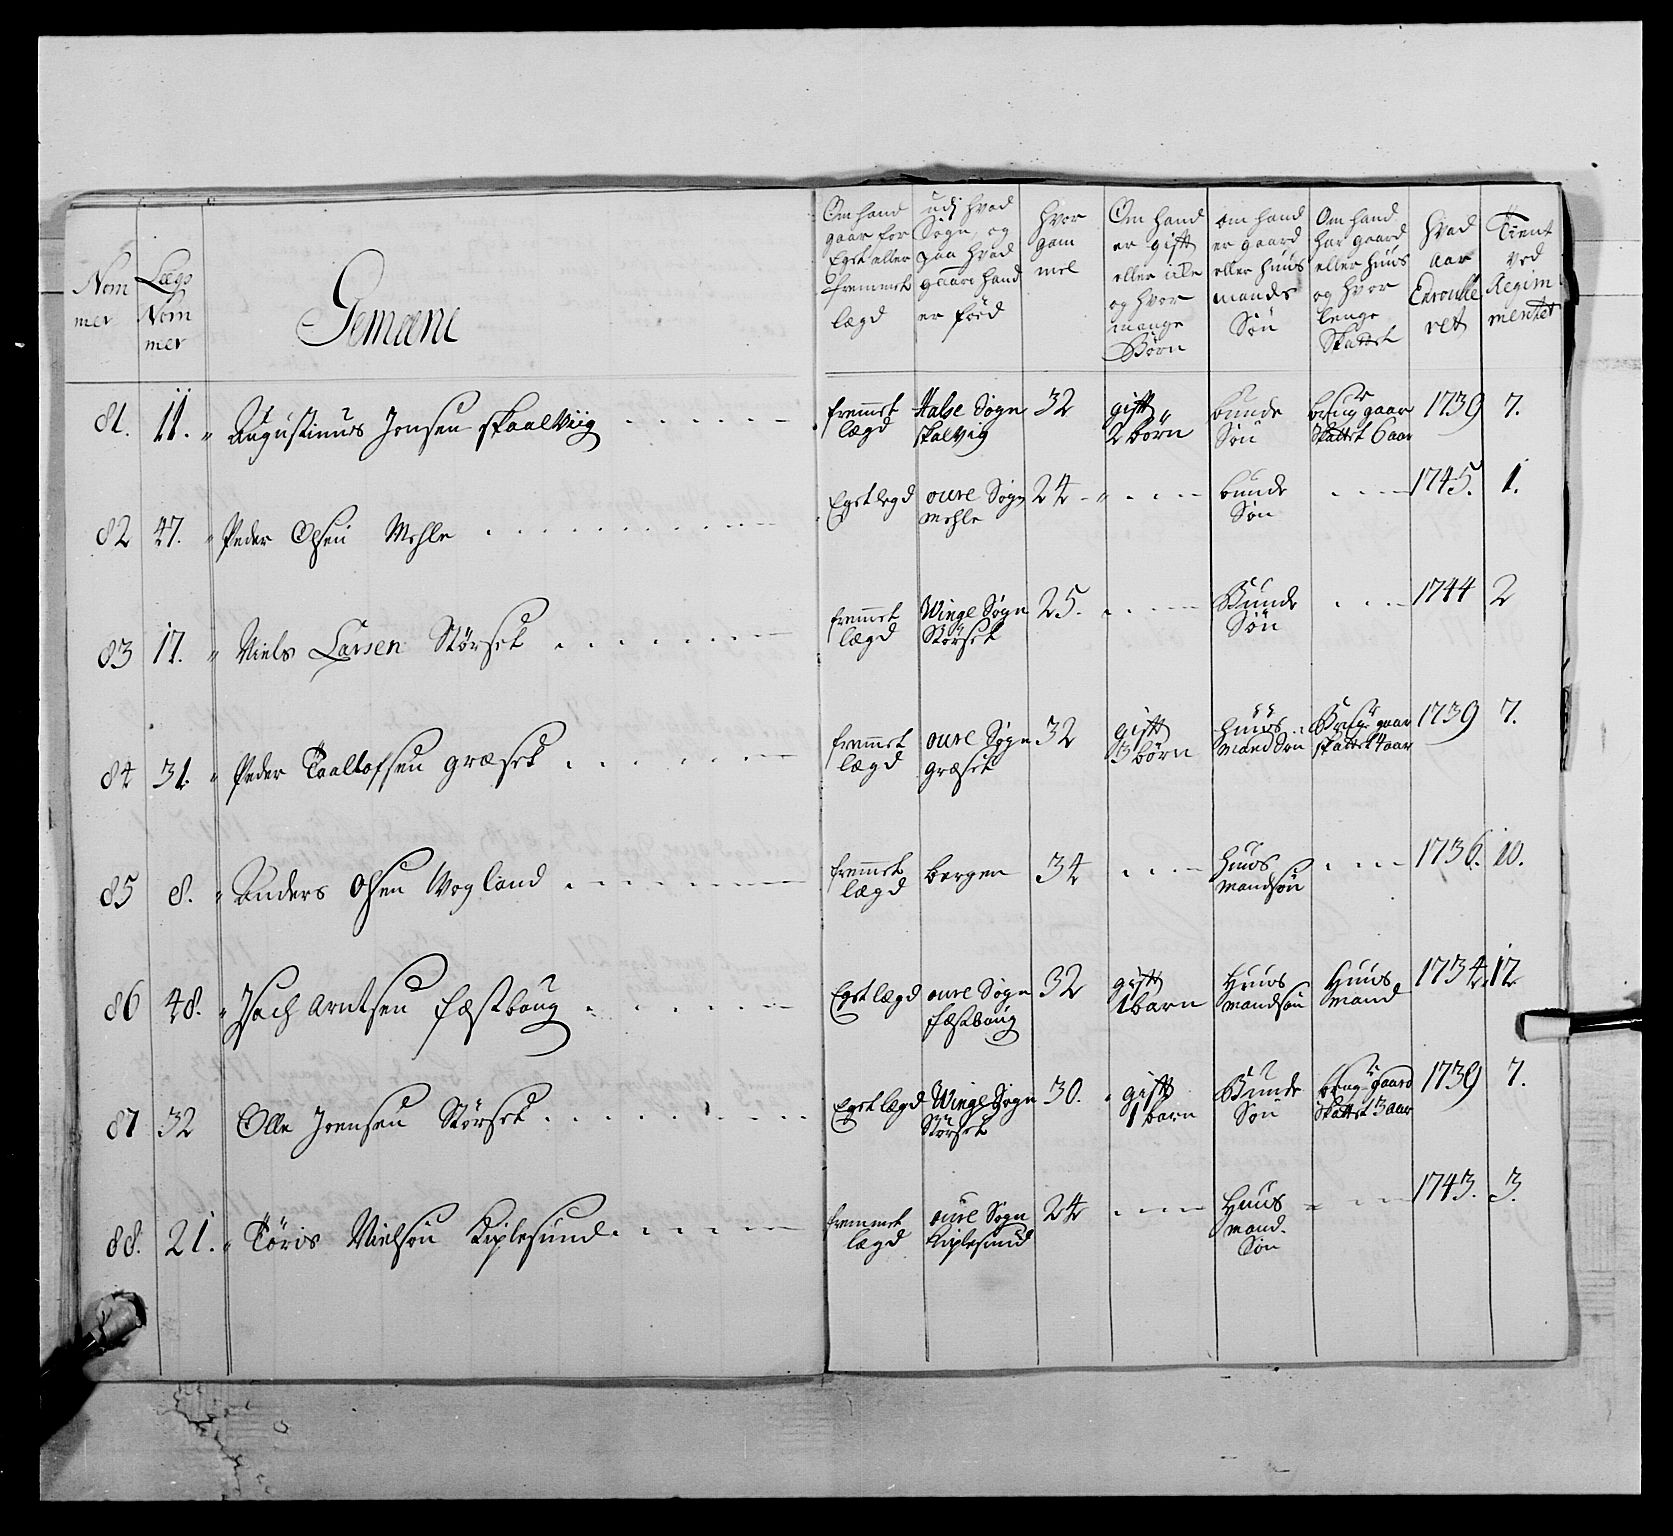 Nom mer
Lægs Nom mer
Gemeene
Om hand gaar for Eget eller fremmet lægd
udj hvad Sogn og paa hvad gaard hand er föed
hvor gam mel
Om hand er gift eller icke og hvor mange Börn
om hand er gaard eller huus mands Sön
Om hand har gaard eller huus og hvor lenge Skattet
hvad aar Enroulle ret
Tient ved Regim mentet
81. 11. Augustinus Jonsen Skaalviig fremmet lægd Halse Sogn Skalvig 32 gift 2 börn bunde Sön brug gaar Skattet 6 aar 1739 7.
82 47. Peder Olsen Mehle Eget legd oure Sogn Mehle 24 bunde Sön 1745. 1.
83 17. Niels Larsen Störset fremmet lægd Winge Sogn Störset 25. Bunde Sön 1744 2
84 31. Peder Taallofsen Græset fremmet lægd oure Sogn Græset 32 gift 3 börn huus mand Sön Bruge gaar skattet 4 aar 1739 7.
85 8. Anders Olsen Wogland fremmet lægd bergen 34 huus mandsön 1736. 10.
86 48. Isach Arntsen fæstboug Eget lægd oure Sogn fæstboug 32 gift 1 barn Huus mandsön Huus mand 1734. 12
87 32 Olle Joensen Störset Eget lægd Winge Sogn Störset 30. gift 1 barn Bunde Sön brug gaard Skattet 3 aar 1739 7.
88. 21. Töris Nielsön Kiplesund fremmet lægd oure Sogn Kiplesund 24 Huus mand. Sön 1743. 3.